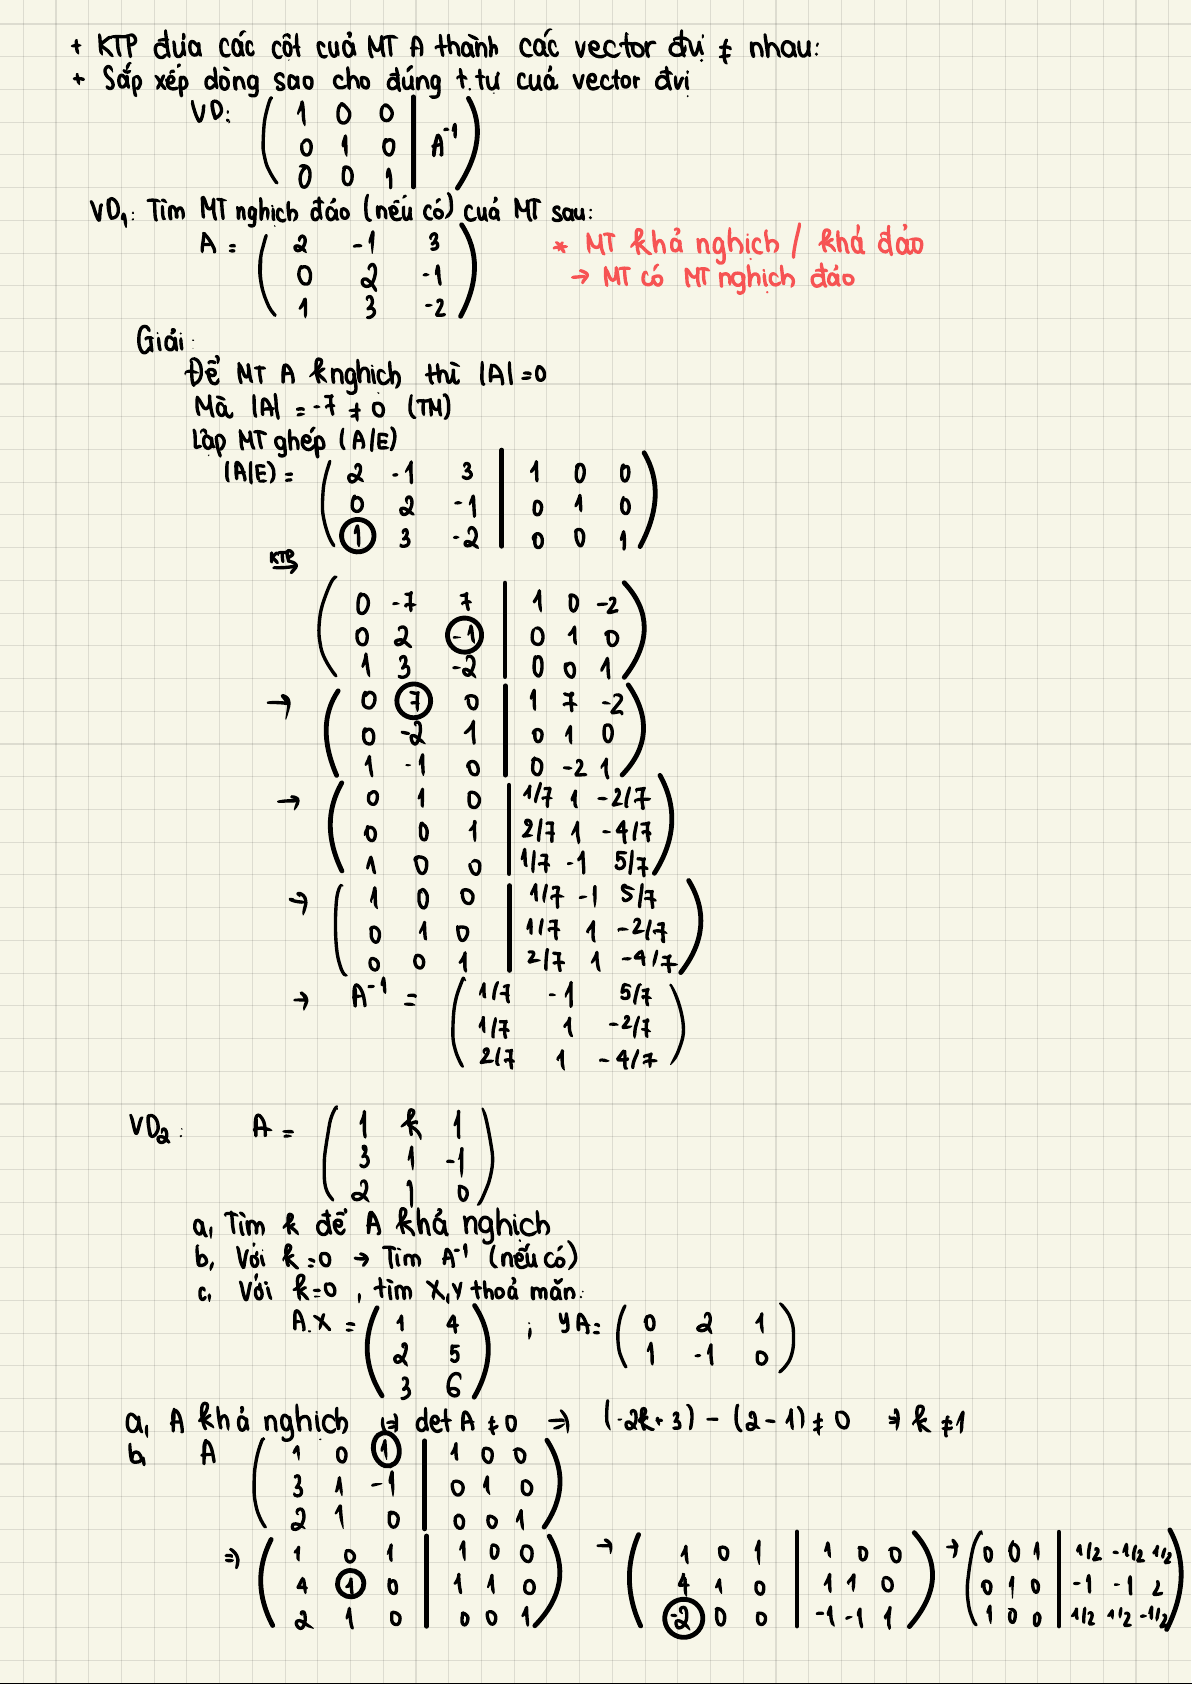 + KTP đưa các cột cuả MT A thành các vector đvị ≠ nhau:
+ Sắp xếp dòng sao cho đúng t.tự cuả vector đvị
VD: ( 1 0 0 | A⁻¹ )
0 1 0
0 0 1
VD₁: Tìm MT nghịch đảo (nếu có) cuả MT sau:
A = ( 2 -1 3 )
0 2 -1
1 3 -2
* MT khả nghịch / khả đảo
→ MT có MT nghịch đảo
Giải:
Để MT A knghịch thì |A| = 0
Mà |A| = -7 ≠ 0 (TM)
Lập MT ghép (A|E)
(A|E) = ( 2 -1 3 | 1 0 0 )
0 2 -1 | 0 1 0
1 3 -2 | 0 0 1
KTP →
( 0 -7 7 | 1 0 -2 )
0 2 -1 | 0 1 0
1 3 -2 | 0 0 1
→ ( 0 7 0 | 1 7 -2 )
0 -2 1 | 0 1 0
1 -1 0 | 0 -2 1
→ ( 0 1 0 | 1/7 1 -2/7 )
0 0 1 | 2/7 1 -4/7
1 0 0 | 1/7 -1 5/7
→ ( 1 0 0 | 1/7 -1 5/7 )
0 1 0 | 1/7 1 -2/7
0 0 1 | 2/7 1 -4/7
→ A⁻¹ = ( 1/7 -1 5/7 )
1/7 1 -2/7
2/7 1 -4/7
VD₂: A = ( 1 k 1 )
3 1 -1
2 1 0
a, Tìm k để A khả nghịch
b, Với k = 0 → Tìm A⁻¹ (nếu có)
c, Với k = 0 , tìm X,Y thoả mãn:
A.X = ( 1 4 ) ; YA = ( 0 2 1 )
2 5 1 -1 0
3 6
a, A khả nghịch ⇔ det A ≠ 0 ⇒ (-2k+3) - (2-1) ≠ 0 ⇒ k ≠ 1
b, A ( 1 0 1 | 1 0 0 )
3 1 -1 | 0 1 0
2 1 0 | 0 0 1
⇒ ( 1 0 1 | 1 0 0 ) → ( 1 0 1 | 1 0 0 ) → ( 0 0 1 | 1/2 -1/2 1/2 )
4 1 0 | 1 1 0 4 1 0 | 1 1 0 0 1 0 | -1 -1 2
2 1 0 | 0 0 1 -2 0 0 | -1 -1 1 1 0 0 | 1/2 1/2 -1/2